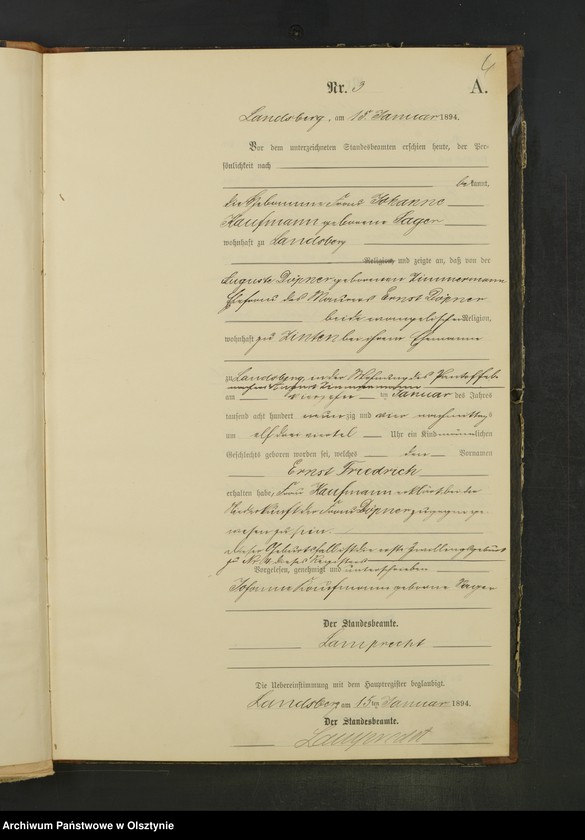 Nr. 3
A.
Landsberg, am 15. Januar 1894.
Vor dem unterzeichneten Standesbeamten erschien heute, der Per-
sönlichkeit nach
bekannt,
die Hebamme Frau Johanne
Kaufmann geborene Sager
wohnhaft zu Landsberg
Religion, und zeigte an, daß von der
Auguste Döpner geborenen Zimmermann
Ehefrau des Maurers Ernst Döpner
beide evangelischer Religion,
wohnhaft zu Zinten bei ihrem Ehemanne
zu Landsberg in der Wohnung des Pantoffel-
machers Zimmermann
am vierzehn ten Januar des Jahres
tausend acht hundert neunzig und vier nachmittags
um elf drei viertel Uhr ein Kind männlichen
Geschlechts geboren worden sei, welches den Vornamen
Ernst Friedrich
erhalten habe, Frau Kaufmann erklärt bei der
Niederkunft der Frau Döpner zugegen ge-
wesen zu sein.
Dieser Geburtsfall ist der erste Zwillingsgeburt
zu Nr. 4 dieses Registers
Vorgelesen, genehmigt und unterschrieben
Johanne Kaufmann geborene Sager
Der Standesbeamte.
Lamprecht
Die Uebereinstimmung mit dem Hauptregister beglaubigt.
Landsberg am 15ten Januar 1894.
Der Standesbeamte.
Lamprecht
Archiwum Państwowe w Olsztynie